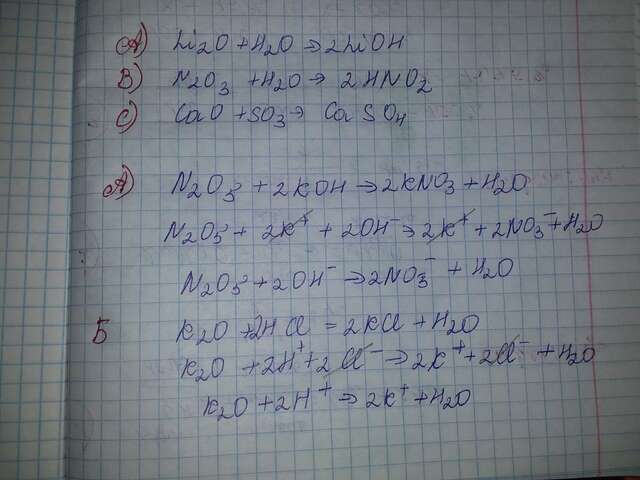 А) Li2O + H2O → 2LiOH
В) N2O3 + H2O → 2HNO2
С) CaO + SO3 → CaSO4
А) N2O5 + 2KOH → 2KNO3 + H2O
N2O5 + 2K⁺ + 2OH⁻ → 2K⁺ + 2NO3⁻ + H2O
N2O5 + 2OH⁻ → 2NO3⁻ + H2O
Б K2O + 2HCl = 2KCl + H2O
K2O + 2H⁺ + 2Cl⁻ → 2K⁺ + 2Cl⁻ + H2O
K2O + 2H⁺ → 2K⁺ + H2O